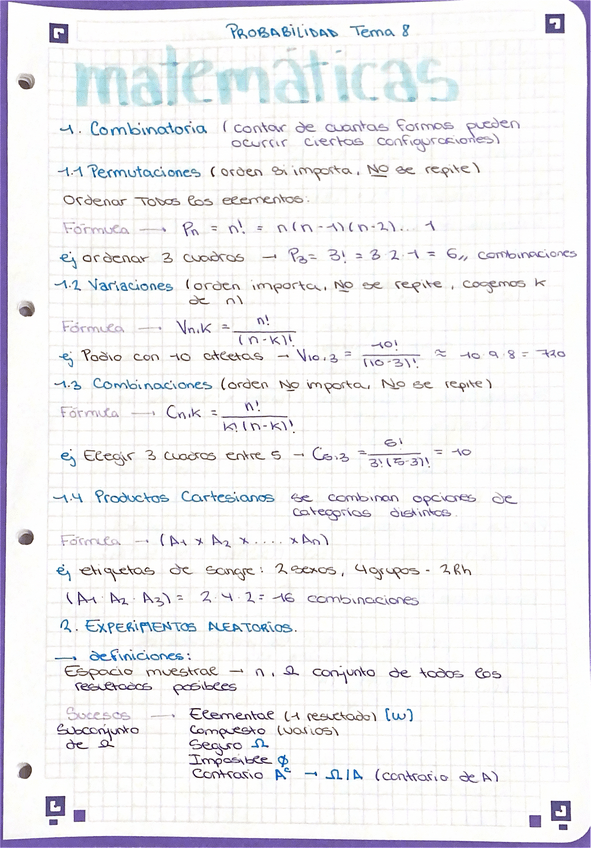 PROBABILIDAD Tema 8
matemáticas
1. Combinatoria (contar de cuantas formas pueden
ocurrir ciertas configuraciones)
1.1 Permutaciones (orden si importa, NO se repite)
Ordenar Todos los elementos:
Fórmula → Pn = n! = n(n-1)(n-2)... 1
ej ordenar 3 cuadros → P3 = 3! = 3·2·1 = 6,, combinaciones
1.2 Variaciones (orden importa, NO se repite, cogemos K
de n)
Fórmula → Vn,K = n!/(n-K)!
ej Podio con 10 atletas → V10,3 = 10!/(10-3)! ≈ 10·9·8 = 720
1.3 Combinaciones (orden NO importa, NO se repite)
Fórmula → Cn,K = n!/K!(n-K)!
ej Elegir 3 cuadros entre 5 → C5,3 = 5!/3!(5-3)! = 10
1.4 Productos Cartesianos se combinan opciones de
categorías distintas.
Fórmula → (A1 x A2 x .... x An)
ej etiquetas de sangre: 2 sexos, 4 grupos - 2 Rh
(A1·A2·A3) = 2·4·2 = 16 combinaciones
2. EXPERIMENTOS ALEATORIOS.
→ definiciones:
Espacio muestral → n, Ω conjunto de todos los
resultados posibles
Sucesos → Elemental (1 resultado) [w]
Subconjunto Compuesto (varios)
de Ω Seguro Ω
Imposible ϕ
Contrario Aᶜ → Ω/A (contrario de A)